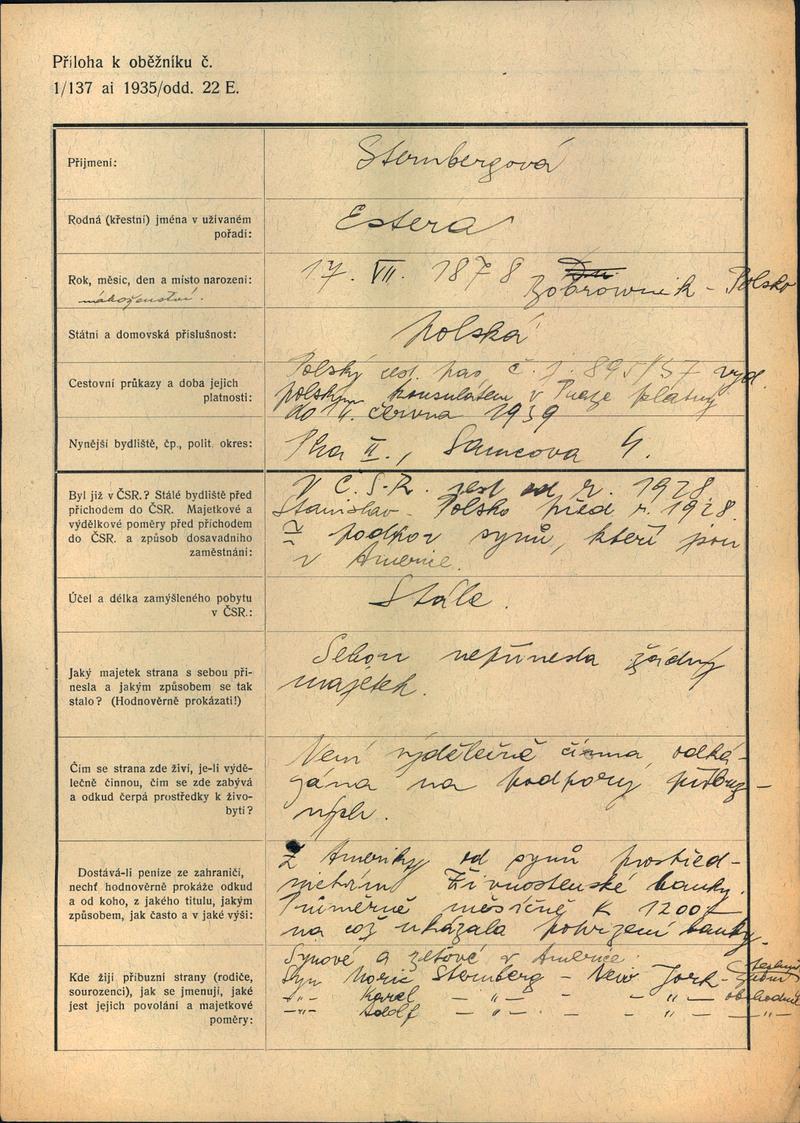 Příloha k oběžníku č.
1/137 ai 1935/odd. 22 E.
Příjmení:
Sternbergová
Rodná (křestní) jména v užívaném
pořadí:
Estera
Rok, měsíc, den a místo narození:
náboženství.
17. VII. 1878
Bobrownik - Polsko
Státní a domovská příslušnost:
polská
Cestovní průkazy a doba jejich
platnosti:
Polský cest. pas č. j. 895/37 vyd.
polským konsulátem v Praze platný
do 4. června 1939
Nynější bydliště, čp., polit. okres:
Pha II., Samcova 4.
Byl již v ČSR.? Stálé bydliště před
příchodem do ČSR. Majetkové a
výdělkové poměry před příchodem
do ČSR. a způsob dosavadního
zaměstnání:
V Č.S.R. jest od r. 1928.
Stanislav - Polsko před r. 1928.
Z podpor synů, kteří jsou
v Americe.
Účel a délka zamýšleného pobytu
v ČSR.:
Stále.
Jaký majetek strana s sebou při-
nesla a jakým způsobem se tak
stalo? (Hodnověrně prokázati!)
Sebou nepřinesla žádný
majetek.
Čím se strana zde živí, je-li výdě-
lečně činnou, čím se zde zabývá
a odkud čerpá prostředky k živo-
bytí?
Není výdělečně činna, odká-
zána na podpory příbuz-
ných.
Dostává-li peníze ze zahraničí,
nechť hodnověrně prokáže odkud
a od koho, z jakého titulu, jakým
způsobem, jak často a v jaké výši:
Z Ameriky od synů prostřed-
nictvím Živnostenské banky.
Průměrně měsíčně K 1200
na což ukázala potvrzení banky.
Kde žijí příbuzní strany (rodiče,
sourozenci), jak se jmenují, jaké
jest jejich povolání a majetkové
poměry:
Synové a zeťové v Americe.
Syn Moric Sternberg - New Jork -
-"- Karel - " - - - " - obchodní
-"- Adolf - " - - - " - - " -